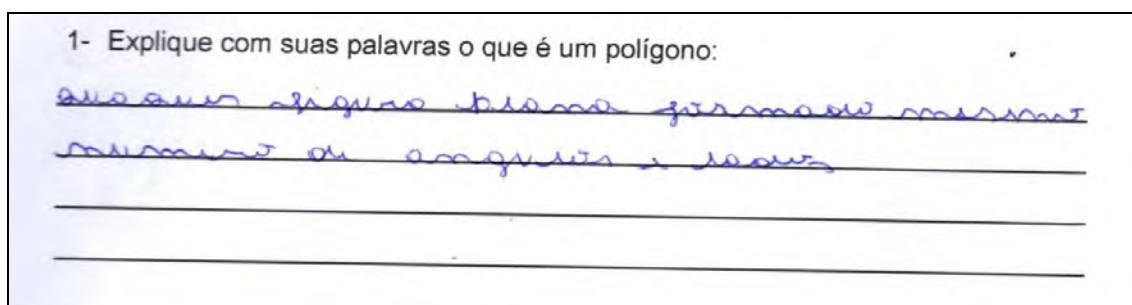 1- Explique com suas palavras o que é um polígono:
quaquer figura plana formado mesmo
numero de angulos e lados